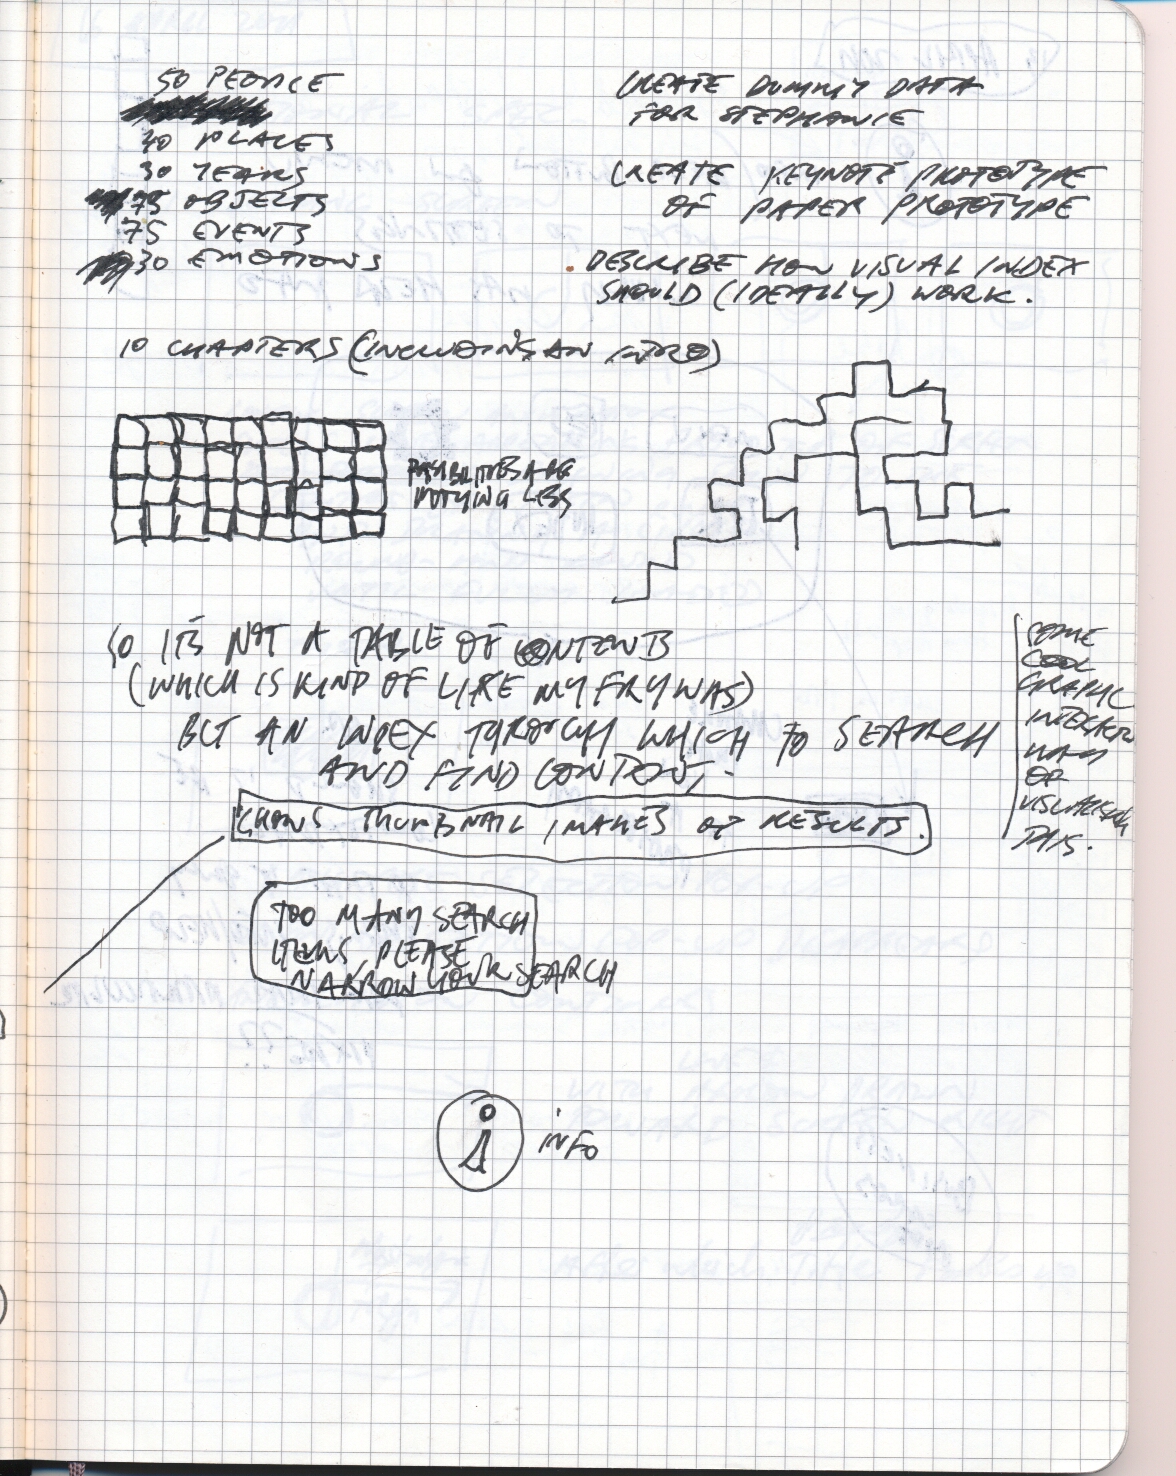 50 PEOPLE
40 PLACES
30 YEARS
75 OBJECTS
75 EVENTS
30 EMOTIONS
CREATE DUMMY DATA
FOR STEPHANIE
CREATE KEYNOTE PROTOTYPE
OF PAPER PROTOTYPE
. DESCRIBE HOW VISUAL INDEX
SHOULD (IDEALLY) WORK.
10 CHAPTERS (INCLUDING AN INTRO)
SO IT'S NOT A TABLE OF CONTENTS
(WHICH IS KIND OF LIKE MYFRY WAS)
BUT AN INDEX THROUGH WHICH TO SEARCH
AND FIND CONTENT.
SOME
COOL
GRAPHIC
WAY
OF
THIS.
THUMBNAIL IMAGES OF RESULTS.
TOO MANY SEARCH
ITEMS PLEASE
NARROW YOUR SEARCH
i INFO